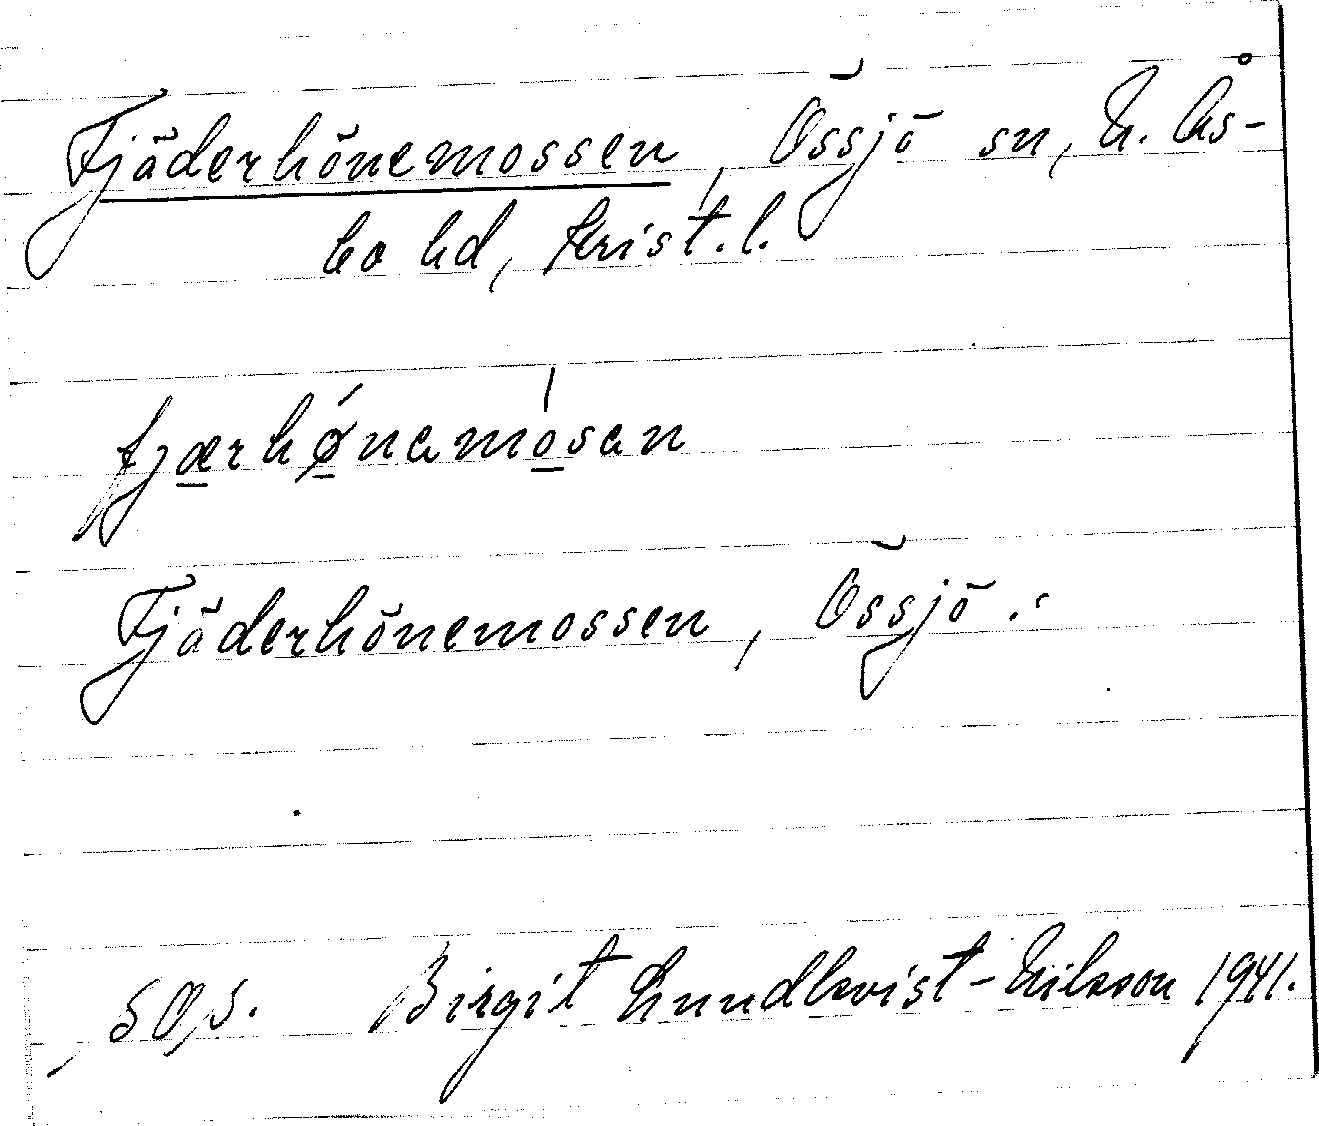 Fjäderhönemossen, Össjö sn, N. Ås-
bo hd, Krist. l.
fjærhǿnamósan
Fjäderhönemossen, Össjö :
Birgit Lundkvist-Nilsson 1941.